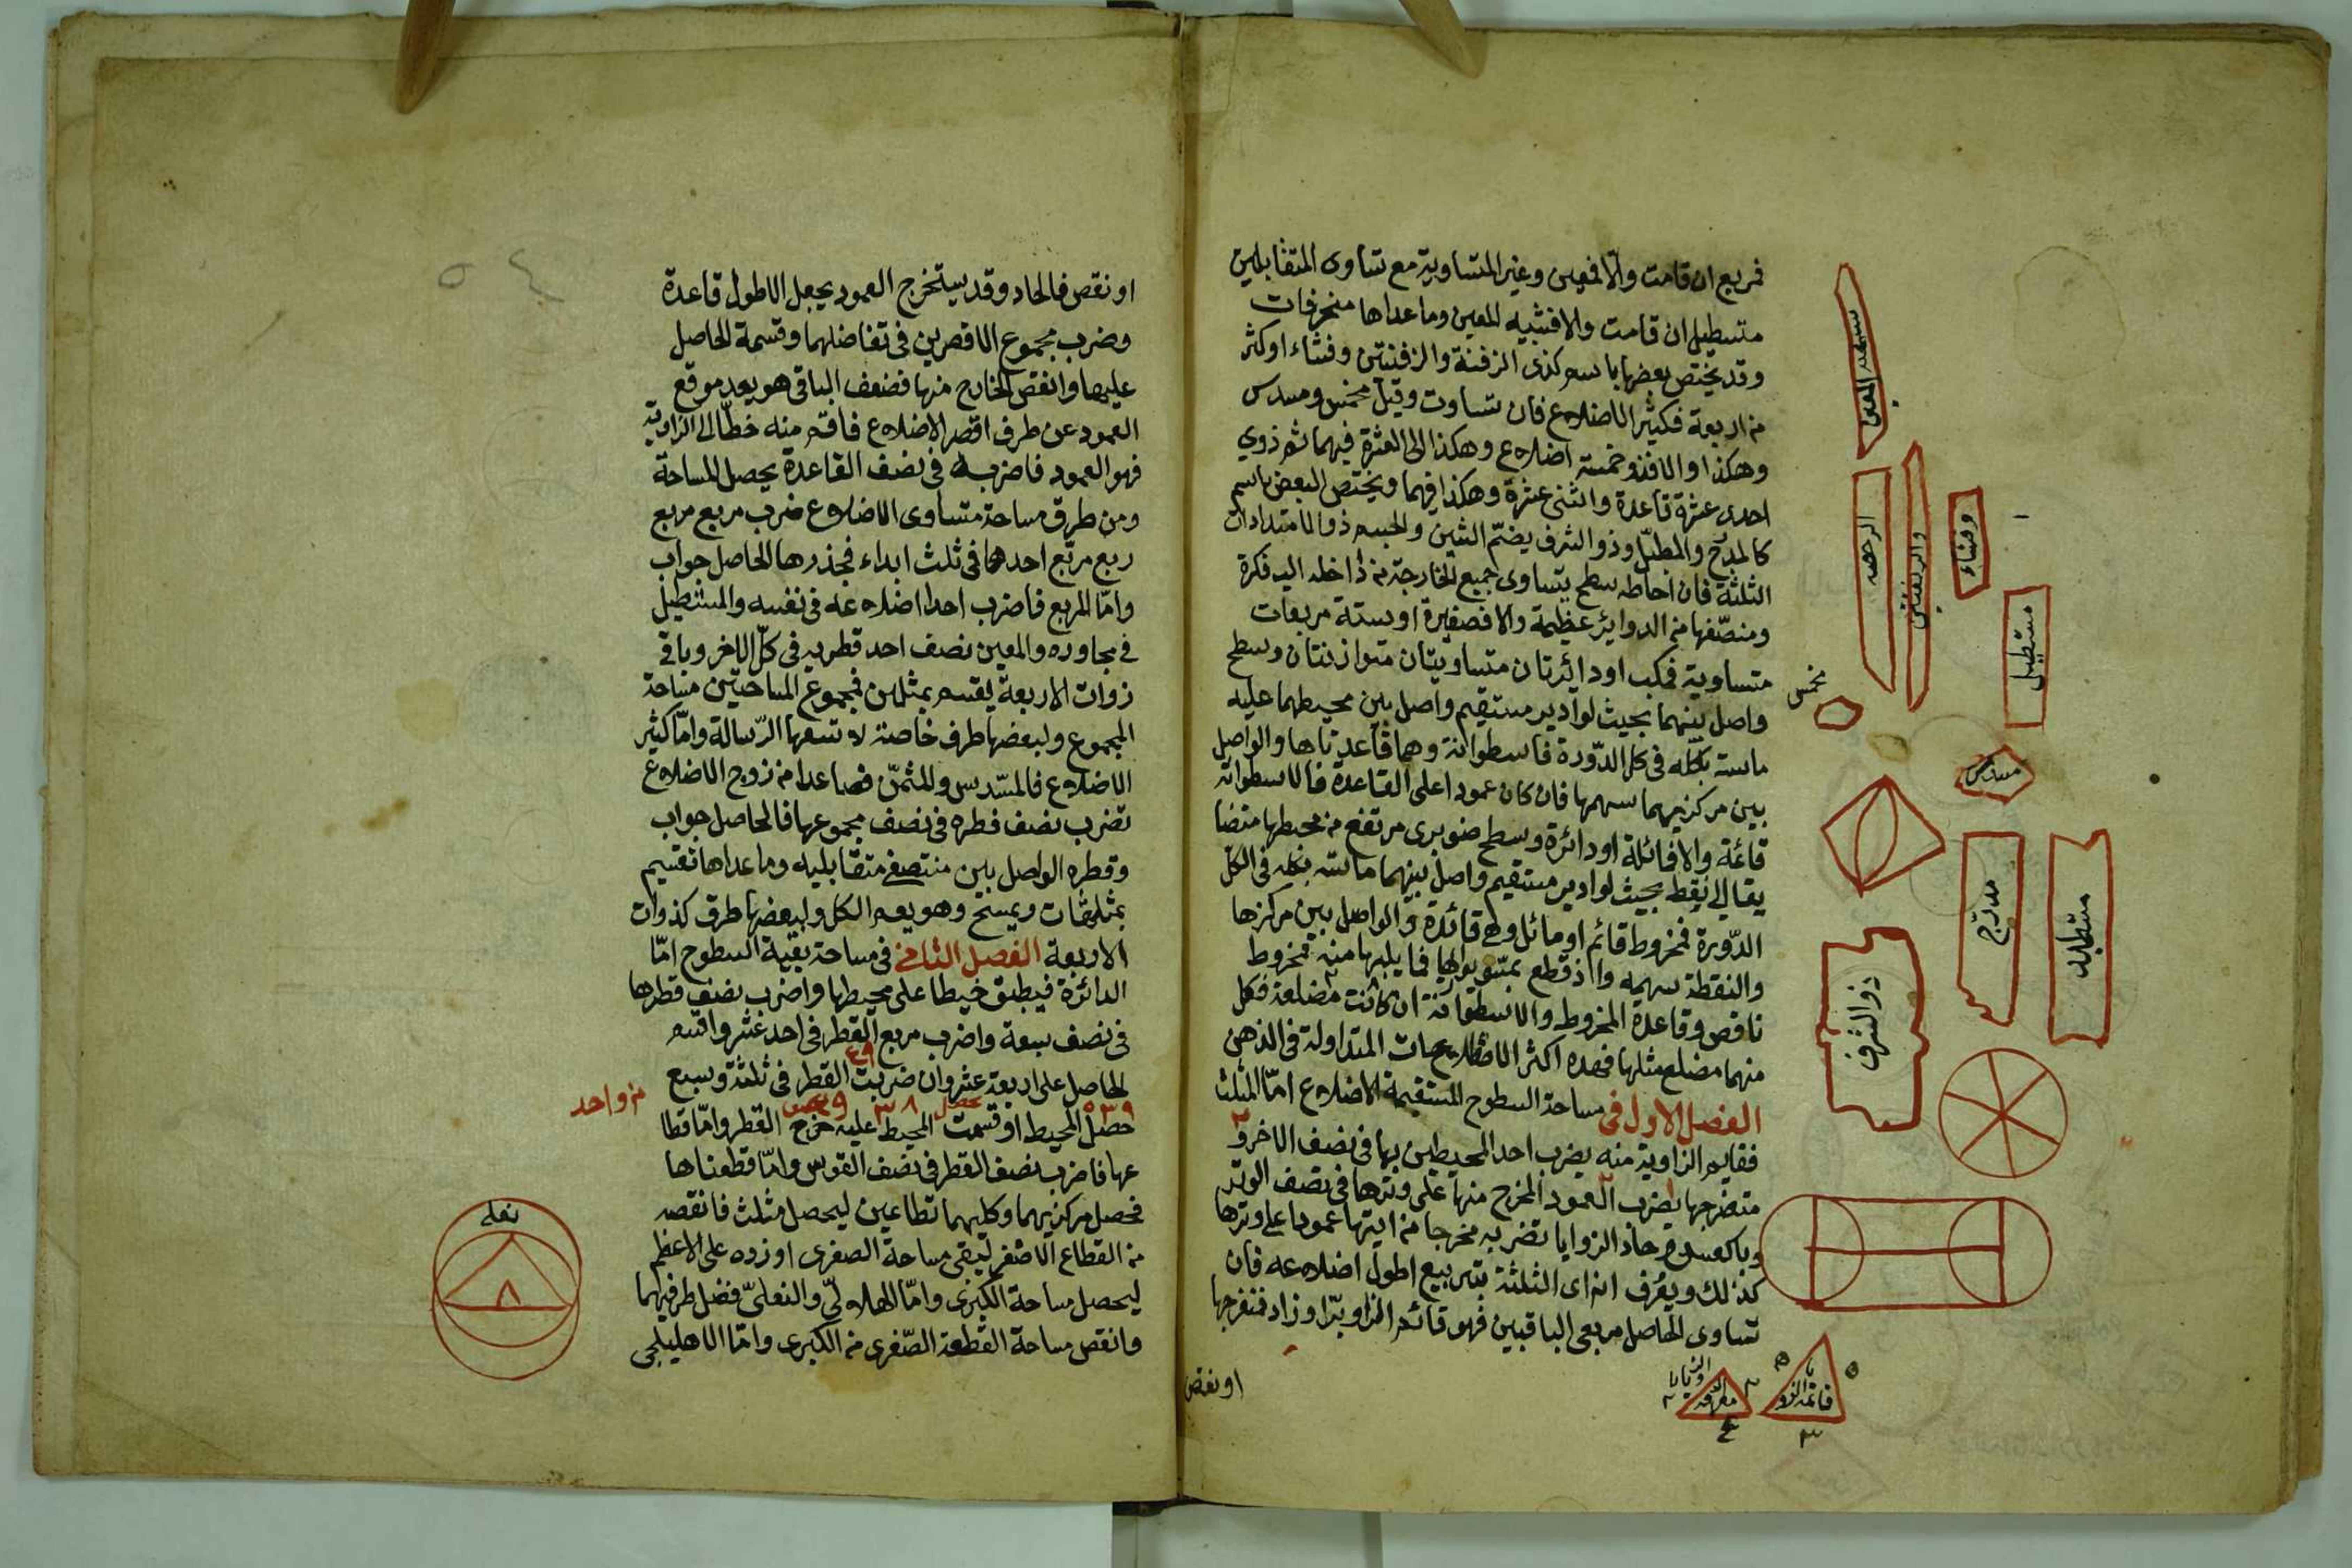 فمربع ان قامت والا فمعين وغير المتساوية مع تساوى المتقابلين
مستطيل ان قامت والا فشبيه المعين وما عداها منحرفات
وقد يختص بعضها باسم كذى الزفنة والزفنتين وقثاء او كثر
من اربعة فكثير الاضلاع فان تساوت وقيل مخمس ومسدس
وهكذا والا فذو خمسة اضلاع وهكذا الى العشرة فيهما ثم ذوي
احدى عشرة قاعدة واثنى عشرة وهكذا فيهما ويختص البعض باسم
كالمدرج والمطبل وذو الشرف بضم الشين والجسم ذو الامتدادات
الثلثة فان احاطه سطح يتساوى جميع الخارجة من داخله اليه فكرة
ومنصفها من الدوائر عظيمة والا فصغيرة او ستة مربعات
متساوية فمكعب او دائرتان متساويتان متوازيتان وسطح
واصل بينهما بحيث لو ادير مستقيم واصل بين محيطهما عليه
ماسته بكله فى كل الدورة فاسطوانة وهما قاعدتاها والواصل
بين مركزيهما سهمها فان كان عمودا على القاعدة فالاسطوانة
قائمة والا فمائلة او دائرة وسطح صنوبرى مرتفع من محيطها متضا
يقا الى نقطة بحيث لو ادير مستقيم واصل بينهما ماسته بكله فى الكل
الدورة فمخروط قائم او مائل وهى قائدة والواصل بين مركزها
والنقطة سهمه واذ قطع بمستو يوازيها فما يليها منه مخروط
ناقص وقاعدة المخروط والاسطوانة ان كانت مضلعة فكل
منهما مضلع مثلها فهذه اكثر الاصطلاحات المتداولة فى الذهن
الفصل الاول فى مساحة السطوح المستقيمة الاضلاع اما المثلث
فقايم الزاوية منه يضرب احد المحيطين بها فى نصف الاخر و
منفرجها يضرب العمود المخرج منها على وترها فى نصف الوتر
وبالعكس وحاد الزوايا تضربه مخرجا من ايتها عمودا على وترها
كذلك ويعرف انه اى الثلثة بتربيع اطول اضلاعه فان
تساوى الحاصل مربعى الباقيين فهو قائم الزاوية او زاد فمنفرجها
او نقص
مخمس
وقثاء
مستطيل
مسدس
مدرج
ذو الشرف
قائمة الزو
او نقص فالحاد وقد يستخرج العمود بجعل الاطول قاعدة
وضرب مجموع الاقصرين فى تفاضلهما وقسمة الحاصل
عليها وانقص الخارج منها فنصف الباقى هو بعد موقع
العمود عن طرف اقصر الاضلاع فاقم منه خطا الى الزاوية
فهو العمود فاضربه فى نصف القاعدة يحصل المساحة
ومن طرق مساحة متساوى الاضلاع ضرب مربع مربع
ربع مربع احدها فى ثلث ابداء فجذرها الحاصل جواب
واما المربع فاضرب احد اضلاعه فى نفسه والمستطيل
فى مجاوره والمعين نصف احد قطريه فى كل الاخر وباقى
ذوات الاربعة يقسم بمثلثين فمجموع المساحتين مساحة
المجموع ولبعضها طرق خاصة لا تسعها الرسالة واما كثير
الاضلاع فالمسدس والمثمن فصاعدا من زوج الاضلاع
تضرب نصف قطره فى نصف مجموعها فالحاصل جواب
وقطره الواصل بين منتصفى متقابليه وما عداها تقسيم
بمثلثات ويمسح وهو يعم الكل ولبعضها طرق كذوات
الاربعة الفصل الثانى فى مساحة بقية السطوح اما
الدائرة فيطبق خيطا على محيطها واضرب نصف قطرها
فى نصف سعة واضرب مربع القطر فى احد عشر واقسم
الحاصل على اربعة عشر وان ضربت القطر فى ثلثة وسبع
من واحد
حصل المحيط او قسمت المحيط عليه خرج القطر واما قطا
عها فاضرب نصف القطر فى نصف القوس واما قطعتاها
فحصل مركزيهما وكلهما قطاعين ليحصل مثلث فانقصه
من القطاع الاصغر ليبقى مساحة الصغرى او زده على الاعظم
ليحصل مساحة الكبرى واما الهلالى والنعلى فضل طرفيهما
وانقص مساحة القطعة الصغرى من الكبرى واما الاهليلجى
نعلى